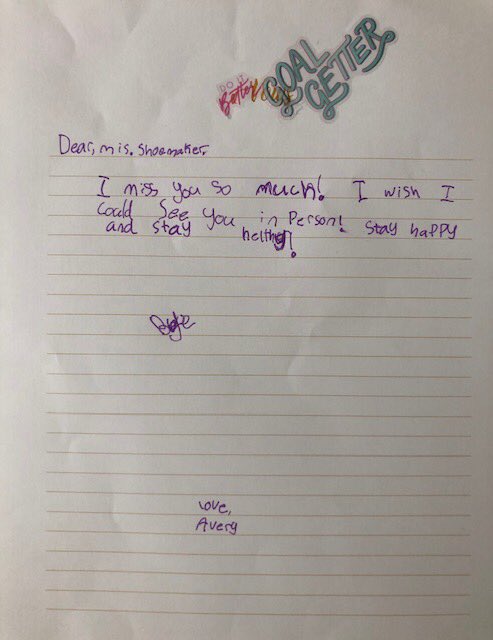 DO IT
Better
GOAL
GETTER
Dear, mis. Shoemaker,
I miss you so much! I wish I
Could See you in Person! Stay happy
and stay helthy!
Love,
Avery